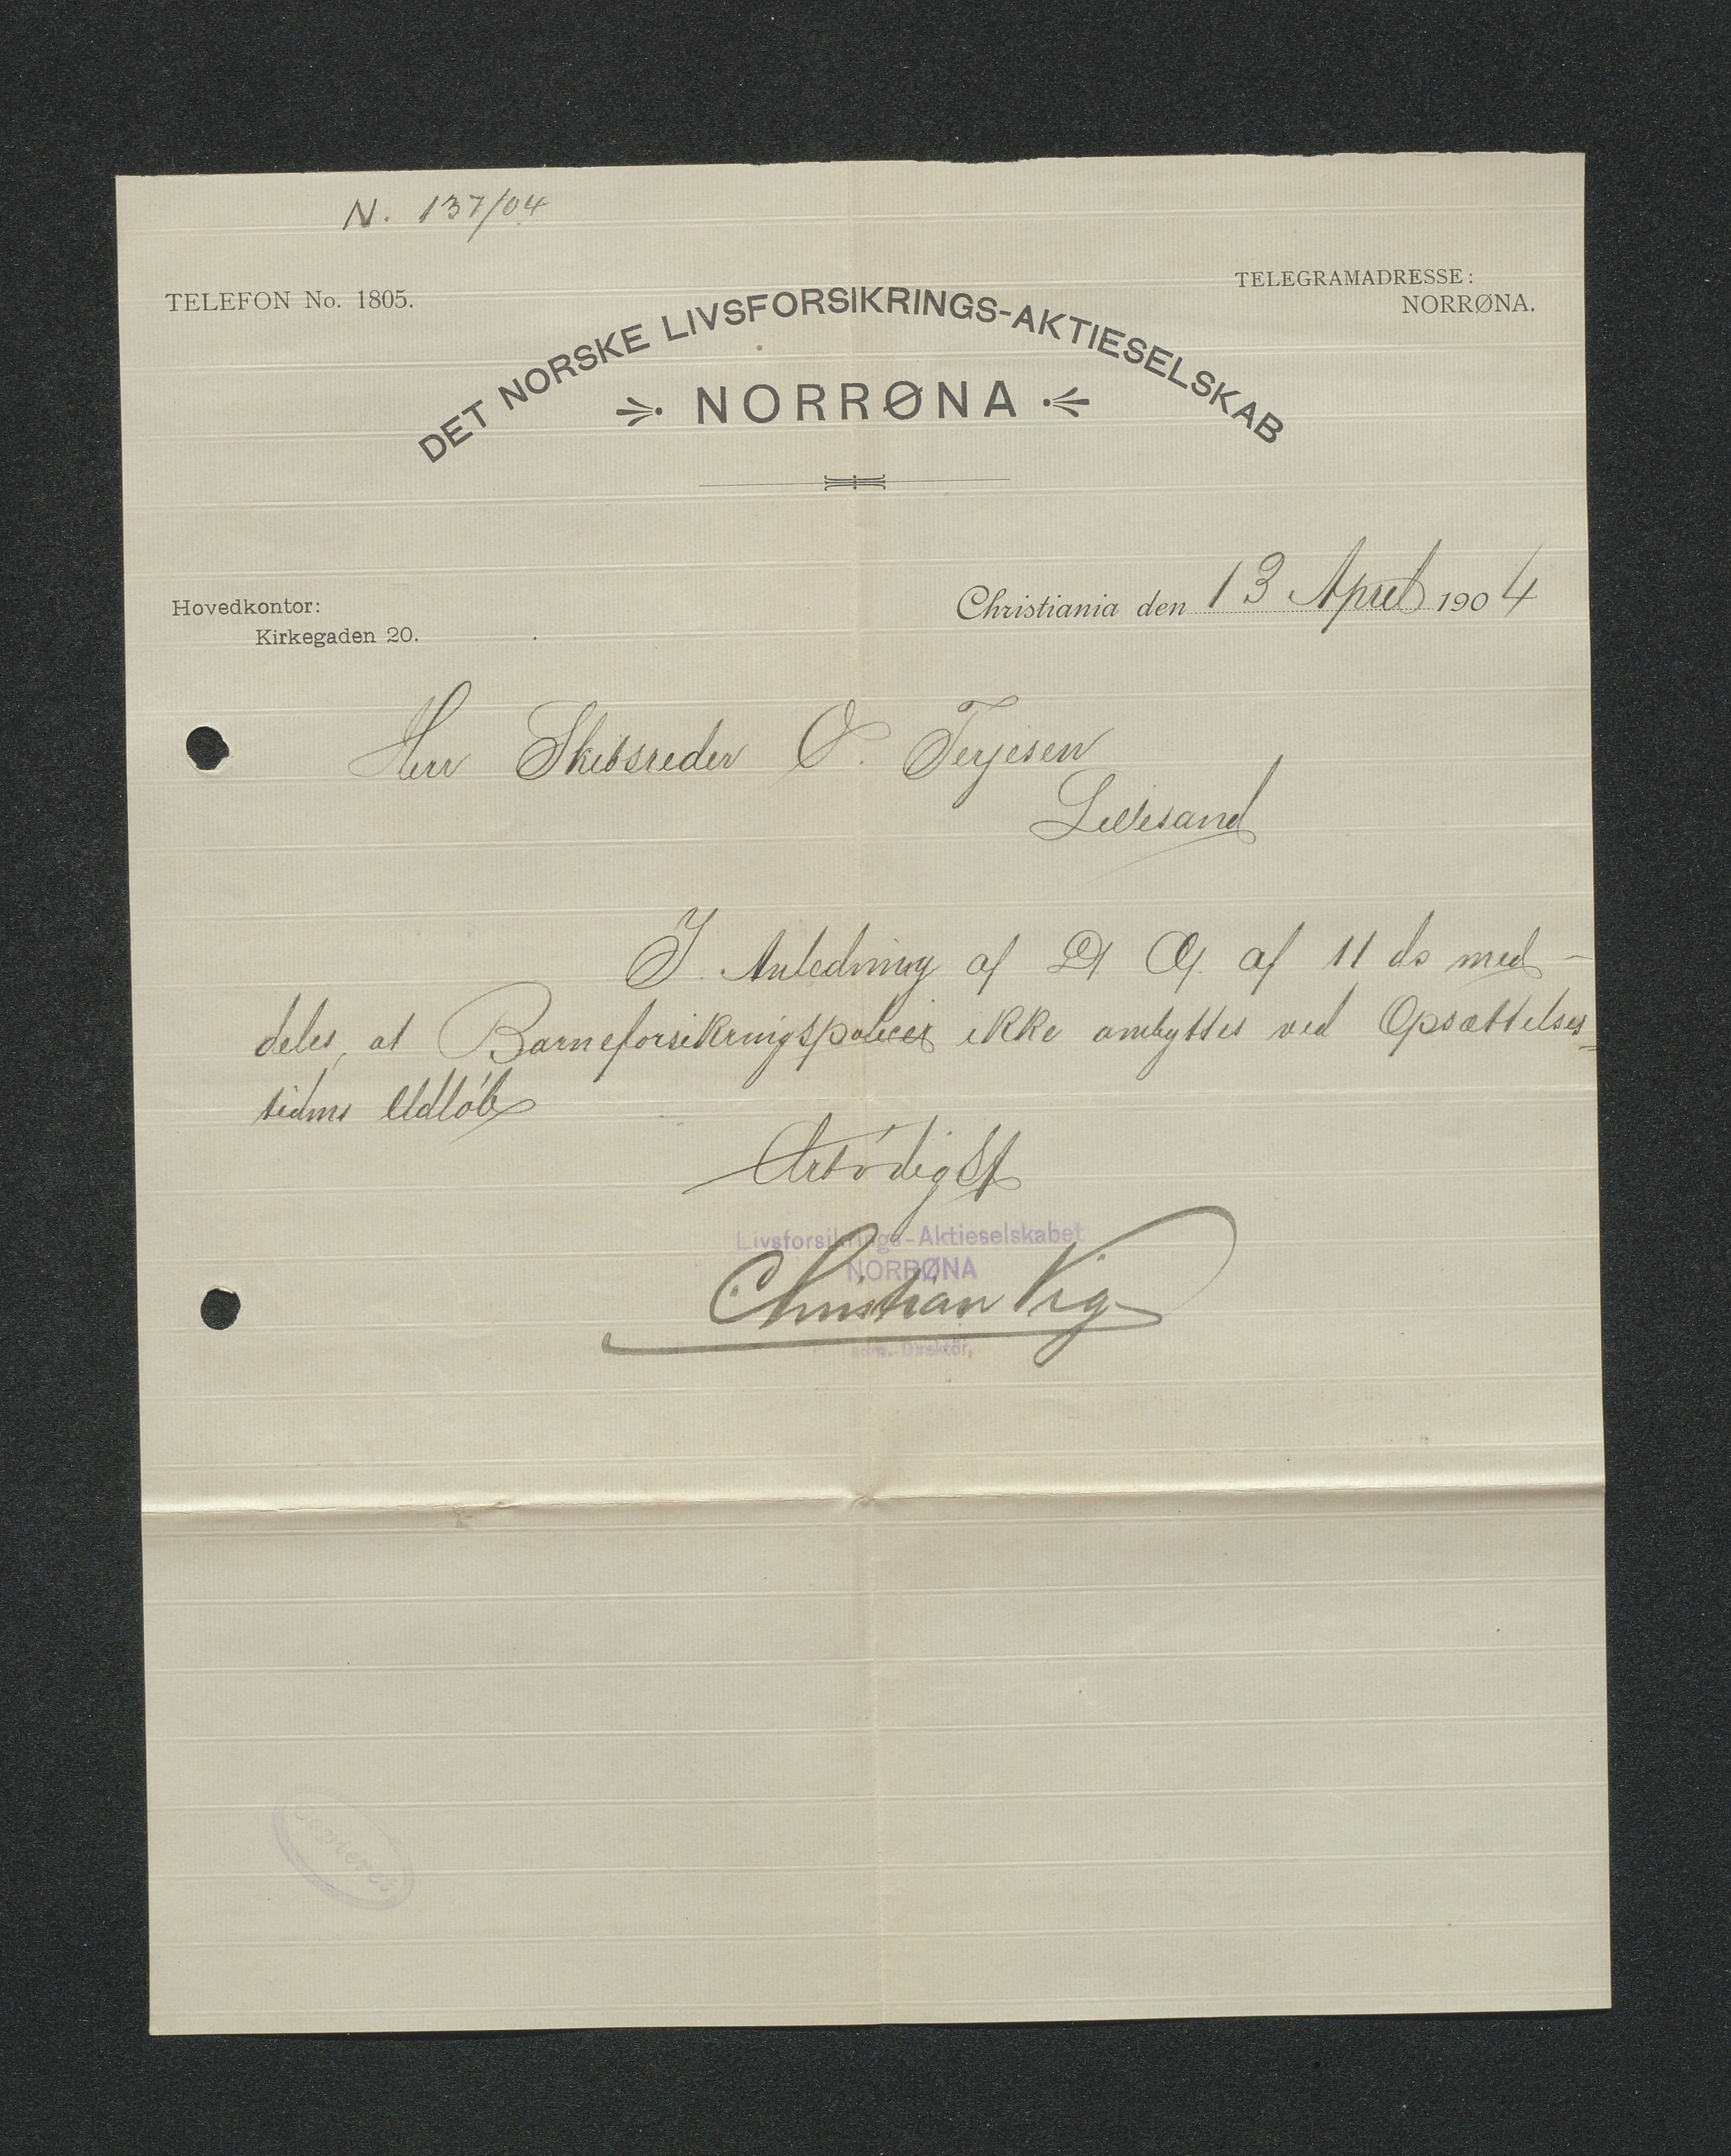 N. 137/04
TELEFON No. 1805.
TELEGRAMADRESSE:
NORRØNA.
DET NORSKE LIVSFORSIKRINGS-AKTIESELSKAB
NORRØNA
Hovedkontor:
Kirkegaden 20.
Christiania den 13 April 1904
Herr Skibsreder O. Terjesen
Lillesand
I Anledning af D/ Æ/ af 11 ds med-
deles, at Barneforsikringspolicer ikke ombyttes ved Opsættelses-
tidens Udløb
Ærbødigst
Livsforsikrings-Aktieselskabet
NORRØNA
Christian Vig
adm. Direktör,
Kopieret